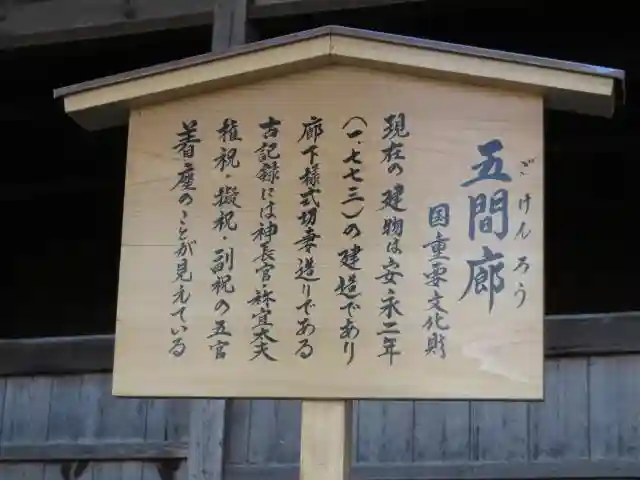 五間廊
ごけんろう
国重要文化財
現在の建物は安永二年
(一、七七三)の建造であり
廊下様式切妻造りである
古記録には神長官・祢宜太夫
権祝・擬祝・副祝の五官
着座のことが見えている